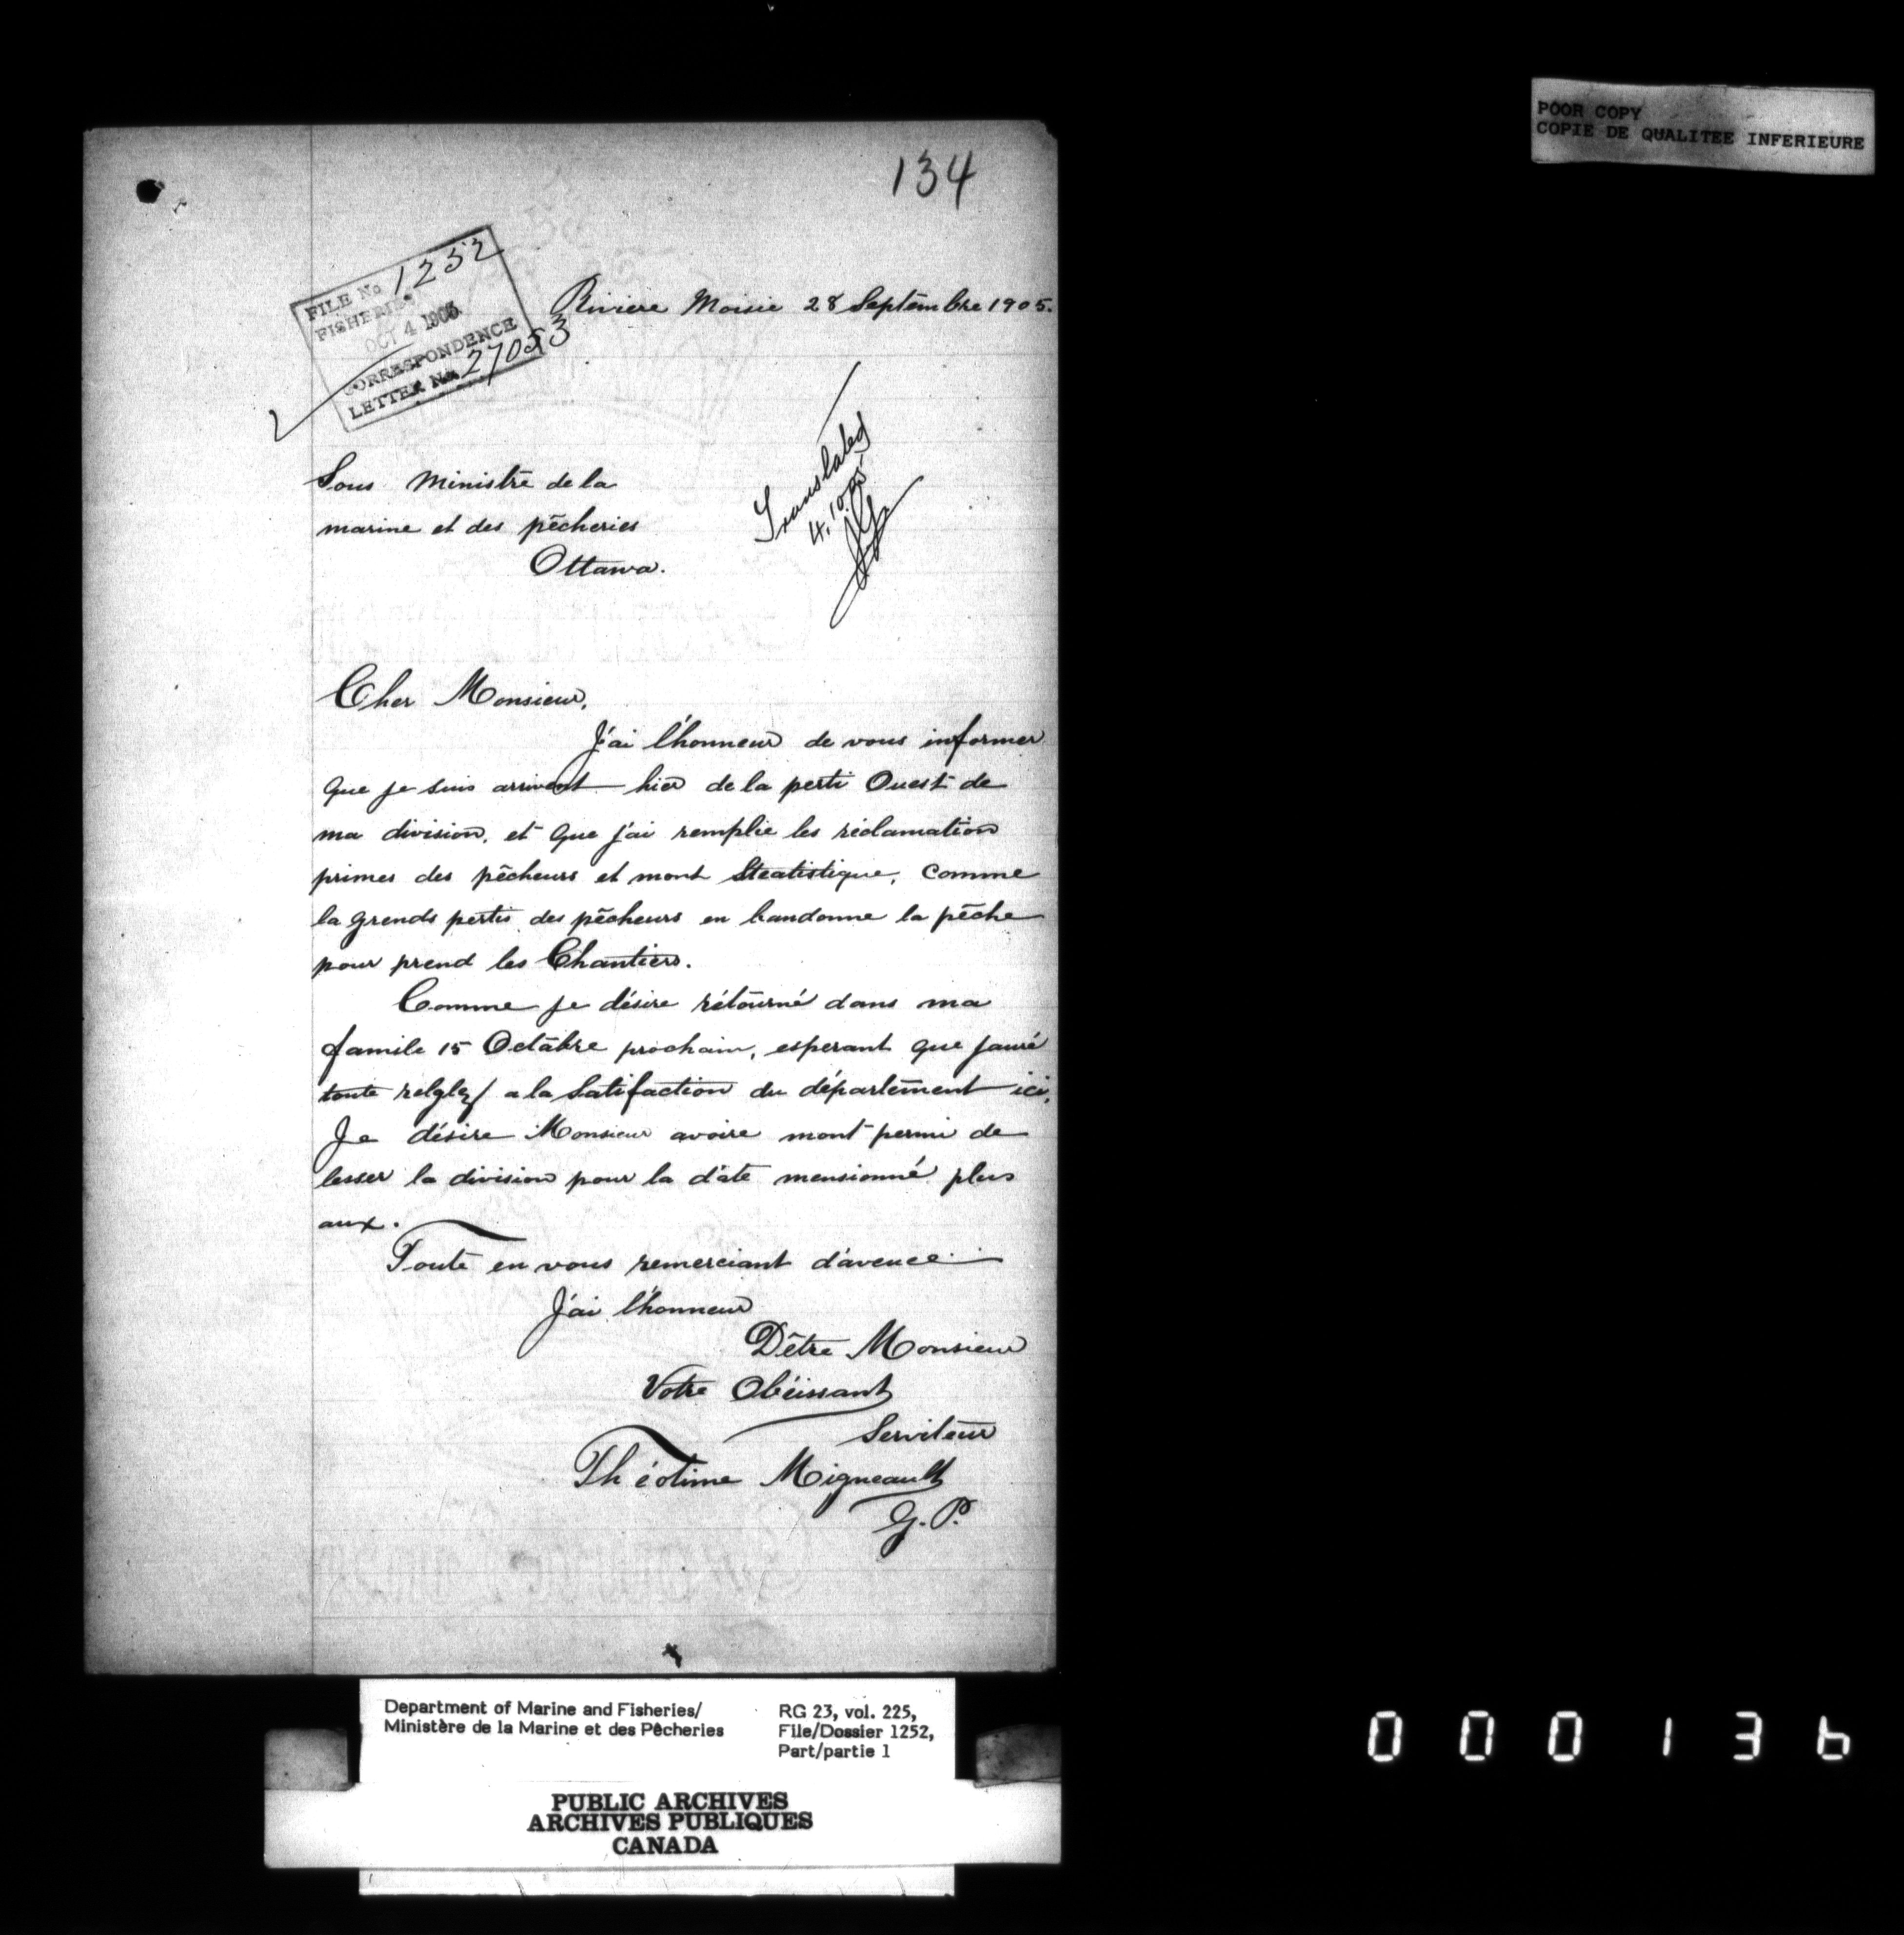 POOR COPY
COPIE DE QUALITEE INFERIEURE
134
FILE No 1252
FISHERIES
OCT 4 1905
CORRESPONDENCE
LETTER No. 27053
Riviere Moisie 28 Septembre 1905.
Translated
4.10.05
Sous Ministre de la
marine et des pêcheries
Ottawa.
Cher Monsieur,
J'ai l'honneur de vous informer
que je suis arrivent hier de la perti Ouest de
ma division, et que j'ai remplie les réclamation
primes des pêcheurs et mont Steatistique, comme
la grends pertis des pêcheurs en bandonne la pêche
pour prend les Chantiers.
Comme je désire rétourné dans ma
famile 15 Octābre prochain, esperant que jauré
toute relglez a la Satifaction du département ici,
Je désire Monsieur avoire mont permi de
lesser la division pour la date mensionné plus
aux.
Toute en vous remerciant d'avence
J'ai l'honneur
Dêtre Monsieur
Votre Obéissant
Serviteur
Théotime Migneault
G. P.
Department of Marine and Fisheries/
Ministère de la Marine et des Pêcheries
RG 23, vol. 225,
File/Dossier 1252,
Part/partie 1
PUBLIC ARCHIVES
ARCHIVES PUBLIQUES
CANADA
000136